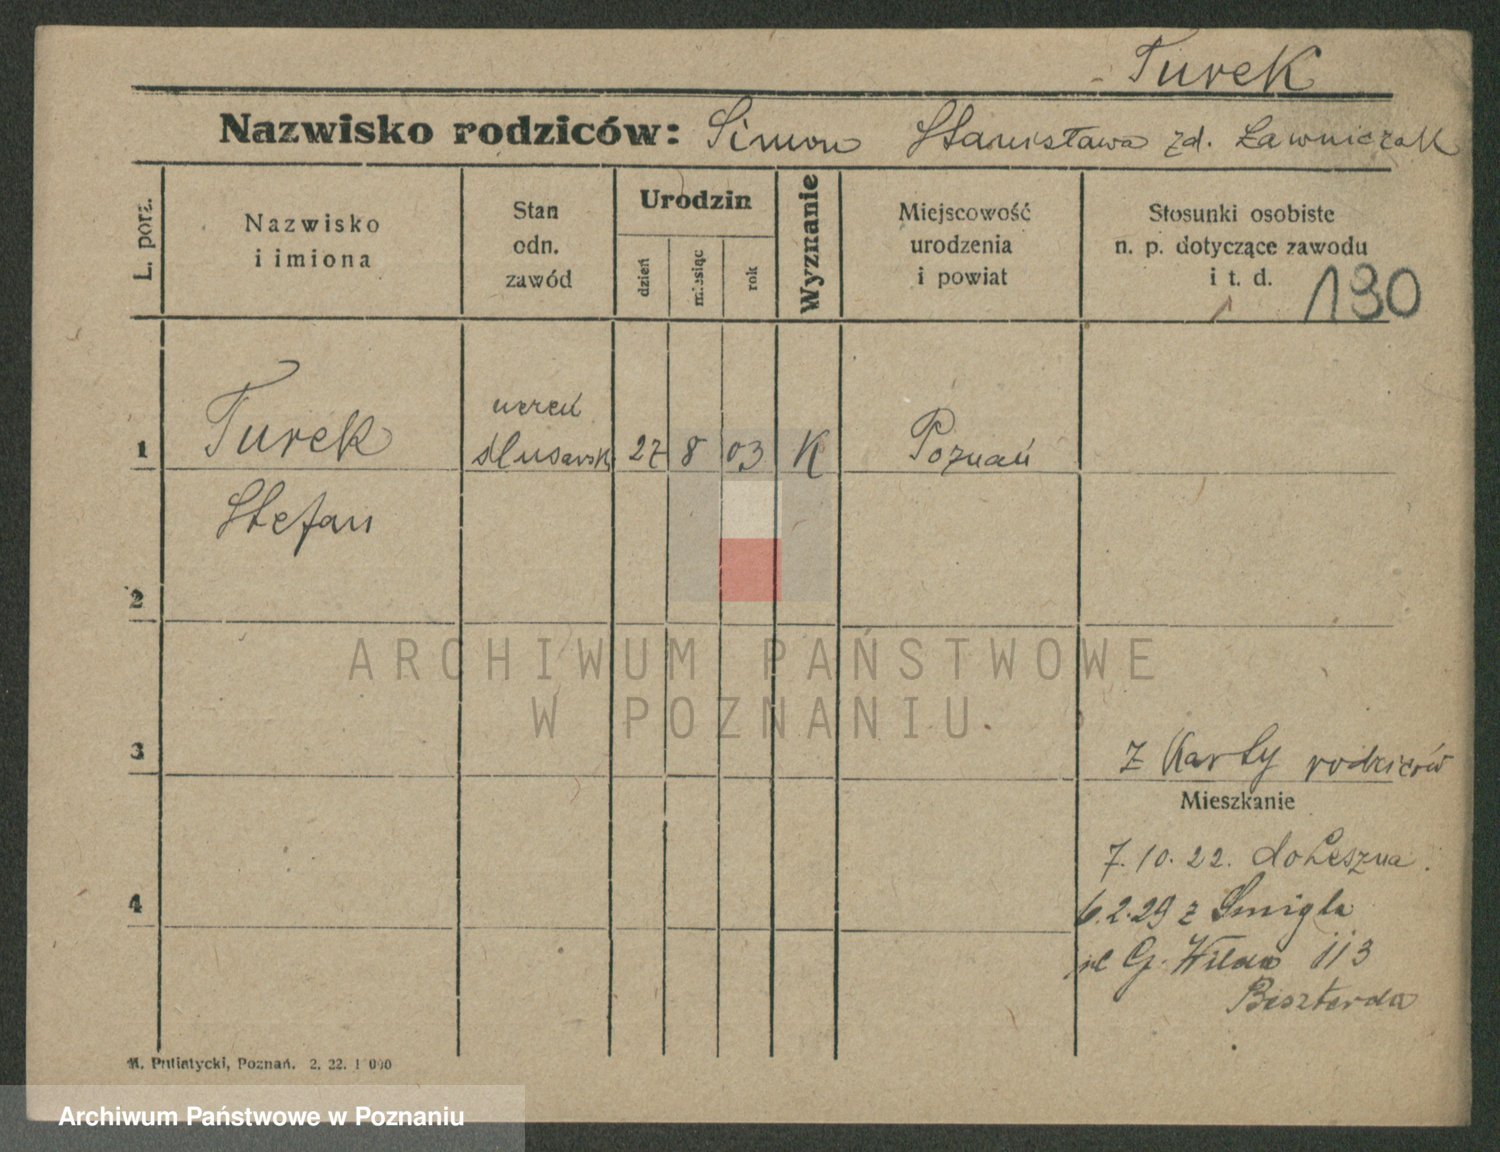 Turek
Nazwisko rodziców: Simon Stanisława zd. Ławniczak
L. porz.
Nazwisko
i imiona
Stan
odn.
zawód
Urodzin
dzień
miesiąc
rok
Wyznanie
Miejscowość
urodzenia
i powiat
Stosunki osobiste
n. p. dotyczące zawodu
i t. d.
190
1
Turek
uczeń
ślusarsk
27
8
03
K
Poznań
Stefan
2
ARCHIWUM PAŃSTWOWE
W POZNANIU
3
z Karty rodziców
Mieszkanie
7.10.22. do Leszna.
4
6.2.29 z Śmigla
G. Wilda 113
Beszterda
Putiatycki, Poznań. 2. 22. 1 000
Archiwum Państwowe w Poznaniu